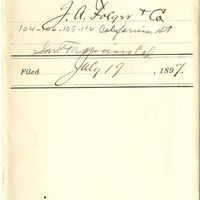 J. A. Folger & Co
104-106-108-110 California St
San Francisco Cal
Filed July 19, 1897.